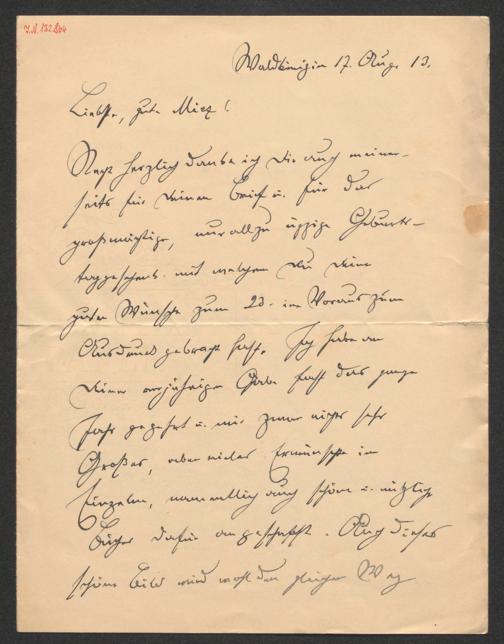 I.N. 132.864
Waldkirchen 17. Aug. 13.
Liebste, gute Miez!
Recht herzlich danke ich Dir auch meiner-
seits für Deinen Brief u. für das
großmächtige, nur allzu üppige Geburts-
tagsgeschenk mit welchem Du Deine
guten Wünsche zum 23. im Voraus zum
Ausdruck gebracht hast. Ich habe an
Deiner vorjährigen Gabe fast das ganze
Jahr gezehrt u. mir zwar nichts sehr
Großes, aber vieles Erwünschte im
Einzelnen, namentlich auch schöne u. nützliche
Bücher dafür angeschafft. Auch dieses
schöne Geld wird wohl den gleichen Weg